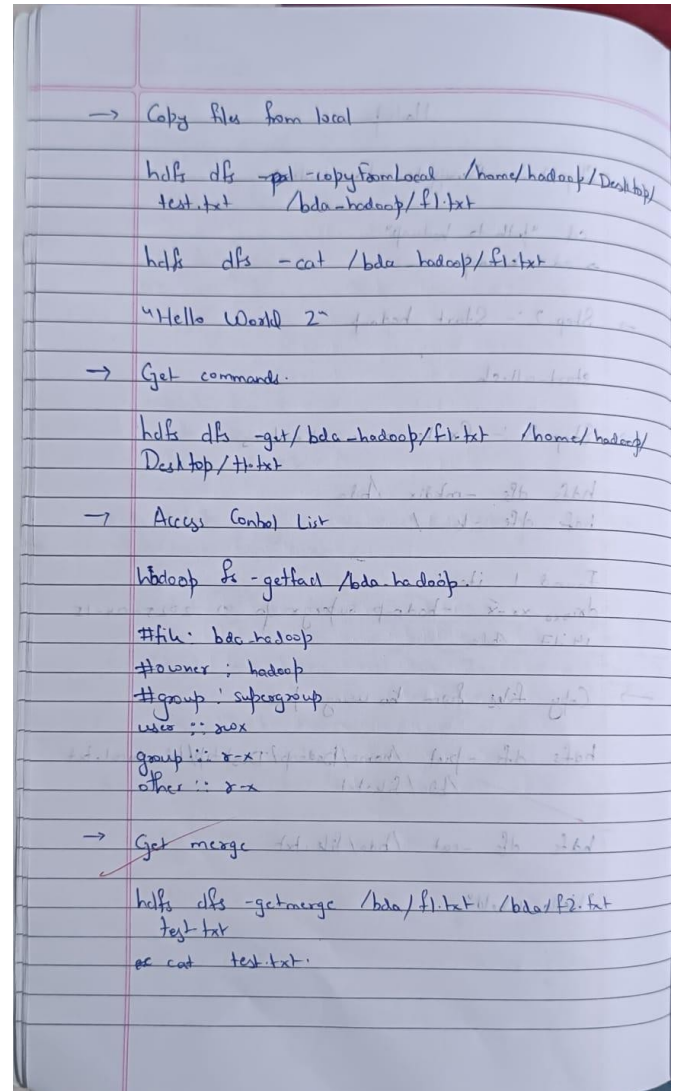 → Copy files from local
hdfs dfs -copyFromLocal /home/hadoop/Desktop/
test.txt /bda-hadoop/f1.txt
hdfs dfs -cat /bda hadoop/f1.txt
"Hello World 2"
→ Get commands.
hdfs dfs -get/bda-hadoop/f1.txt /home/hadoop/
Desktop/
→ Access Control List
hadoop fs -getfacl /bda-hadoop.
#file: bda-hadoop
#owner: hadoop
#group: supergroup
user :: rwx
group :: r-x
other :: r-x
→ Get merge
hdfs dfs -getmerge /bda/f1.txt /bda/f2.txt
test.txt
cat test.txt.